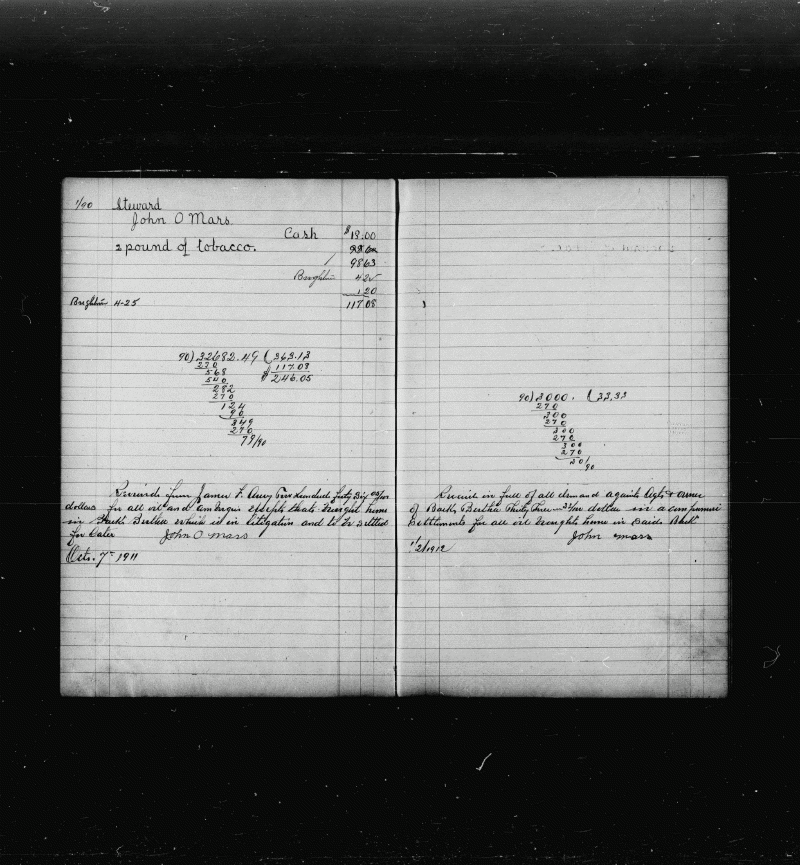 1/90 Steward
John O Mars.
Cash $18.00
2 pound of tobacco.
9863
Brightin 425
120
Brightin 4-25 117 08
90)32682.49(363.13
270 117.08
568 $246.05
540
282
270
124
90
349
270
79/90
Received from James F. Avery Two hundred forty Six 05/100
dollars for all oil and ambergris except that brought home
in Bark Bertha which is in litigation and to be settled
for Later John O Mars
Oct. 7th 1911
90)3000. (33.33
270
300
270
300
270
300
270
30/90
Received in full of all demand against Agts & owner
of Bark Bertha Thirty three 33/100 dollar in a compromise
Settlements for all oil brought home in said Bark
1/2/1912 John Mars